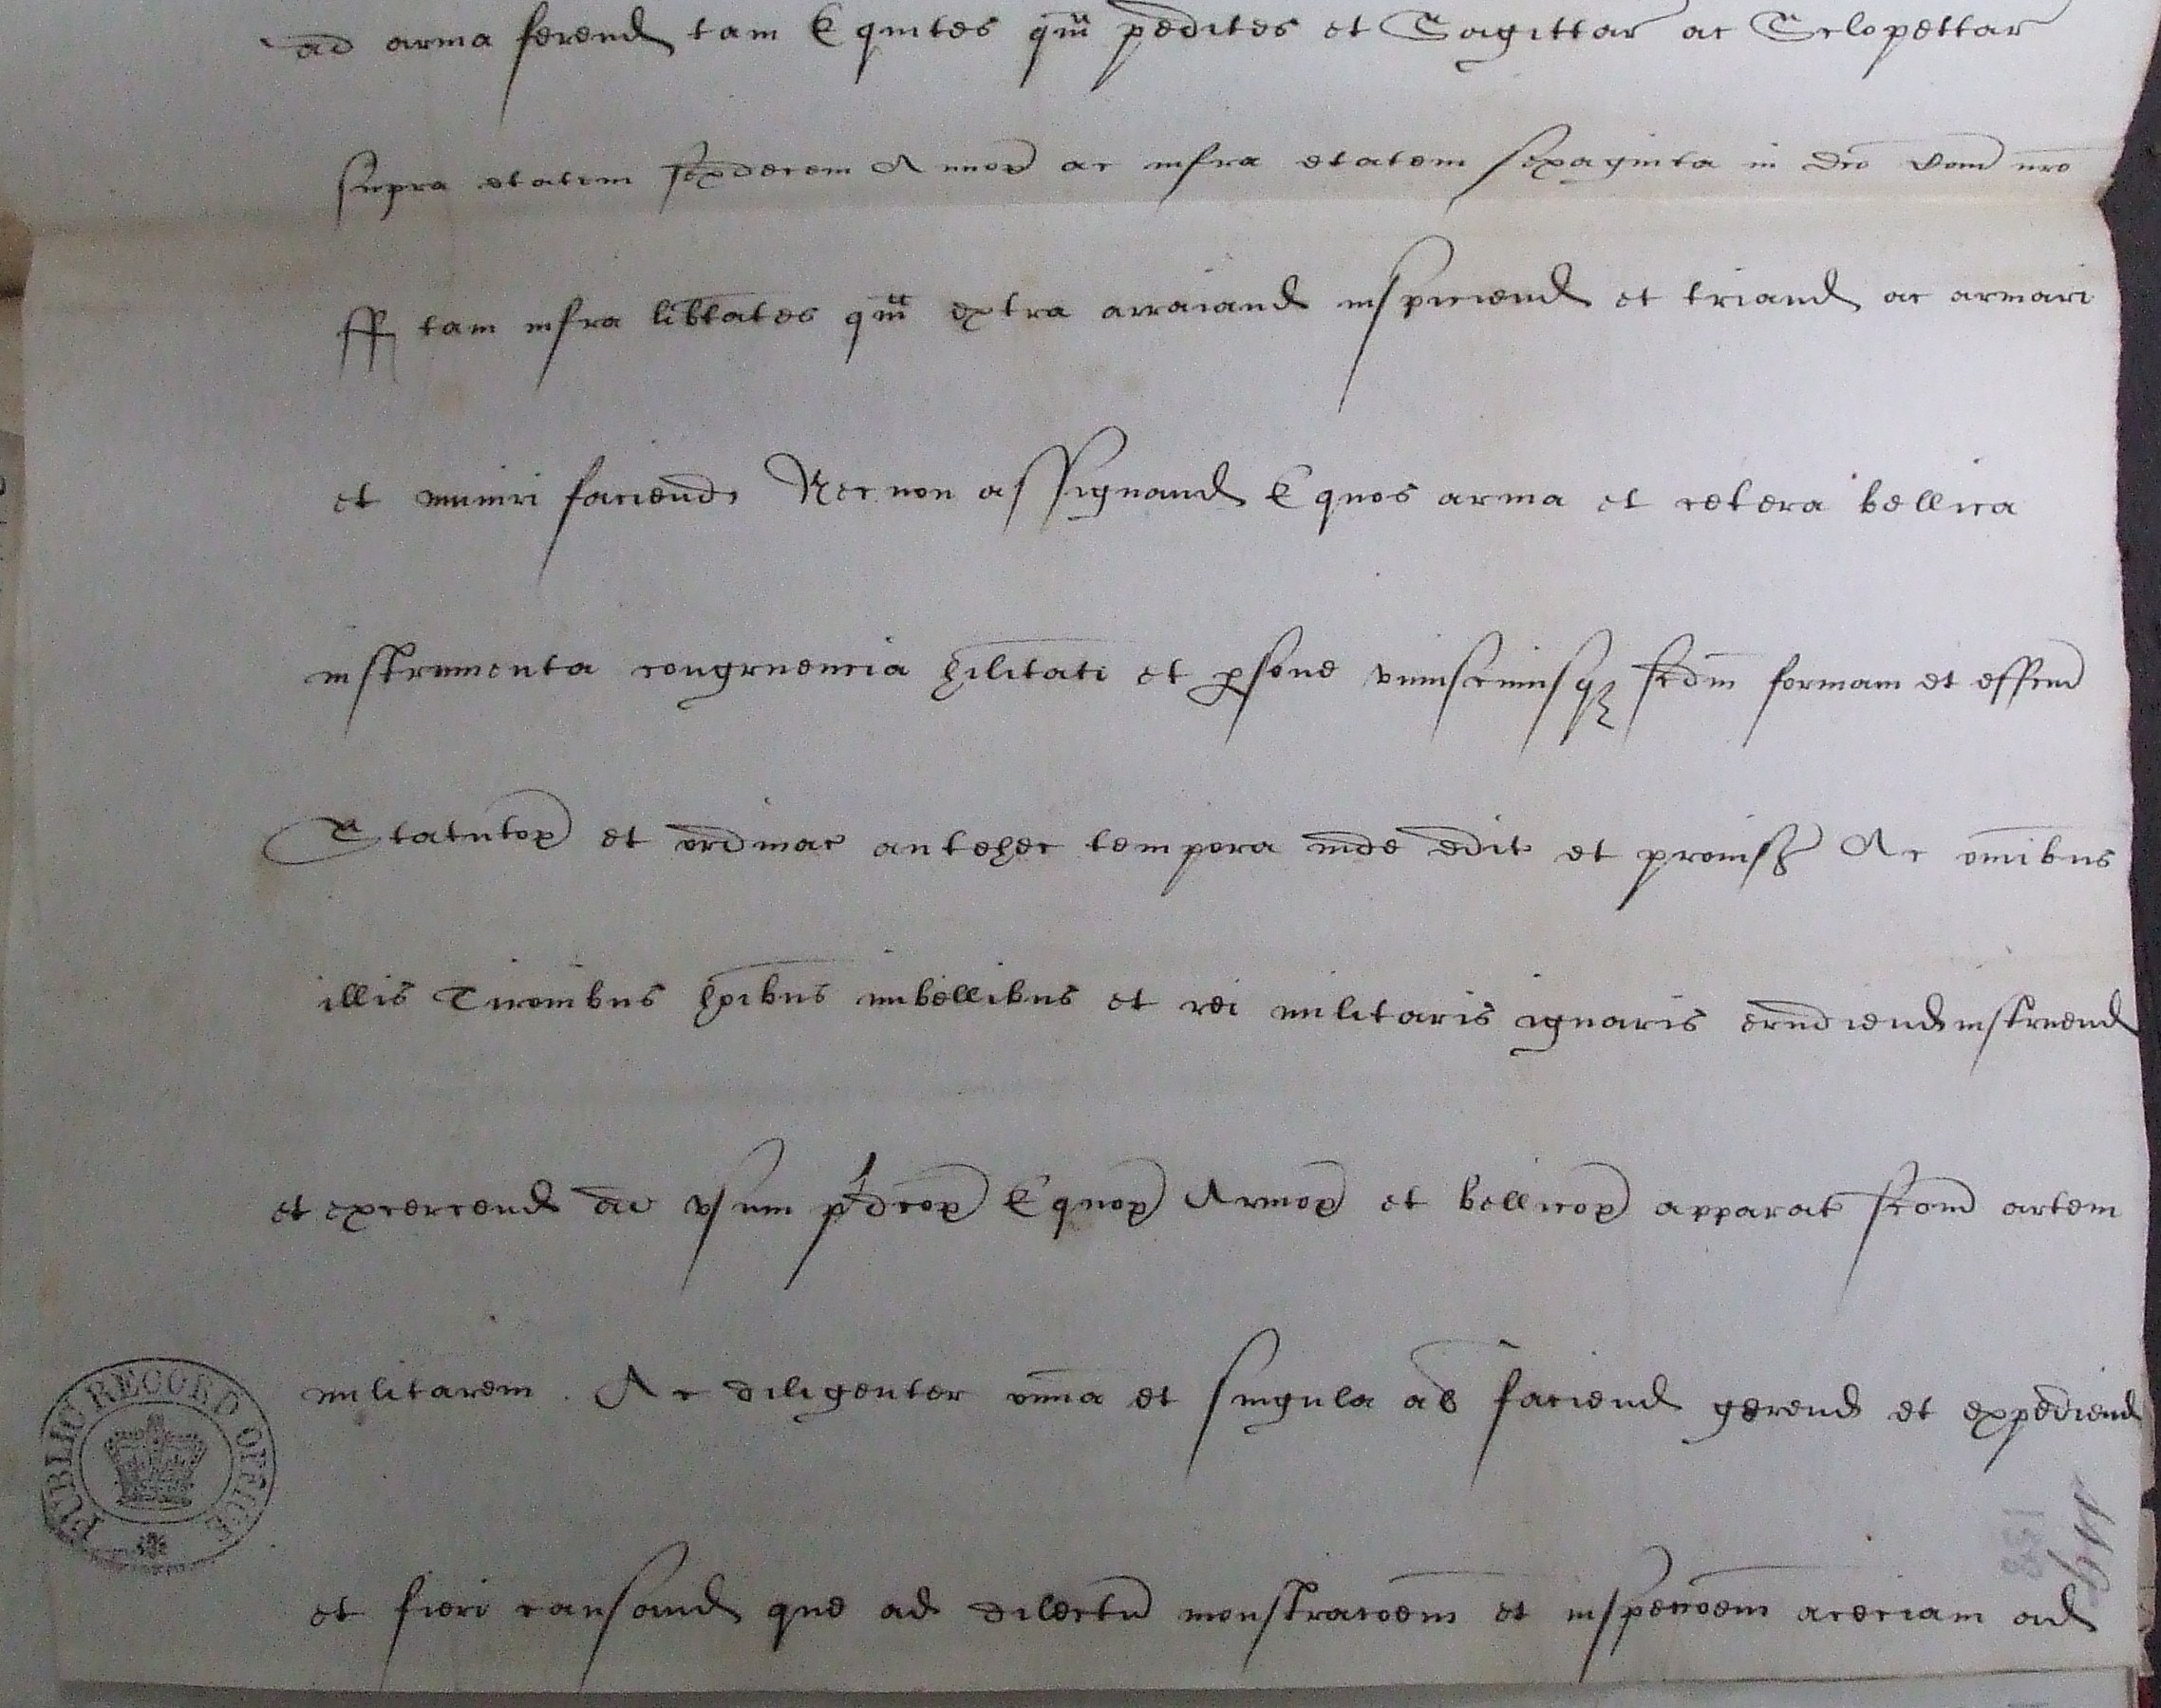 ad arma ferend tam Equites qm pedites et Sagittar ac Sclopettar
supra etatem sexdecem Annor ac infra etatem sexaginta in dco Com nro
ff tam infra libtates qm extra arraiand inspiciend et triand ac armari
et muniri faciend Necnon assignand Equos arma et cetera bellica
instrumenta congruencia hilitati et psone uniuscuiusq scdm formam et effcm
Statutor et ordinac antehec tempora inde edit et provis Ac omibus
illis Tironibus hoibus imbellibus et rei militaris ignaris erudiend instruend
et exercend ad usum pdcor Equor Armor et bellicor apparat scdm artem
militarem. Ac diligenter omia et singula al faciend gerend et expediend
et fieri causand que ad dilectu monstracoem et inspeccoem aceciam ad
PUBLIC RECORD OFFICE